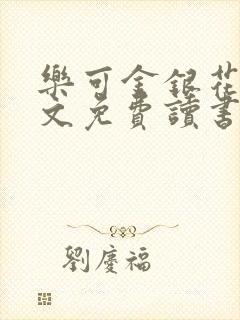 樂可金銀花
文免費讀書
劉慶福